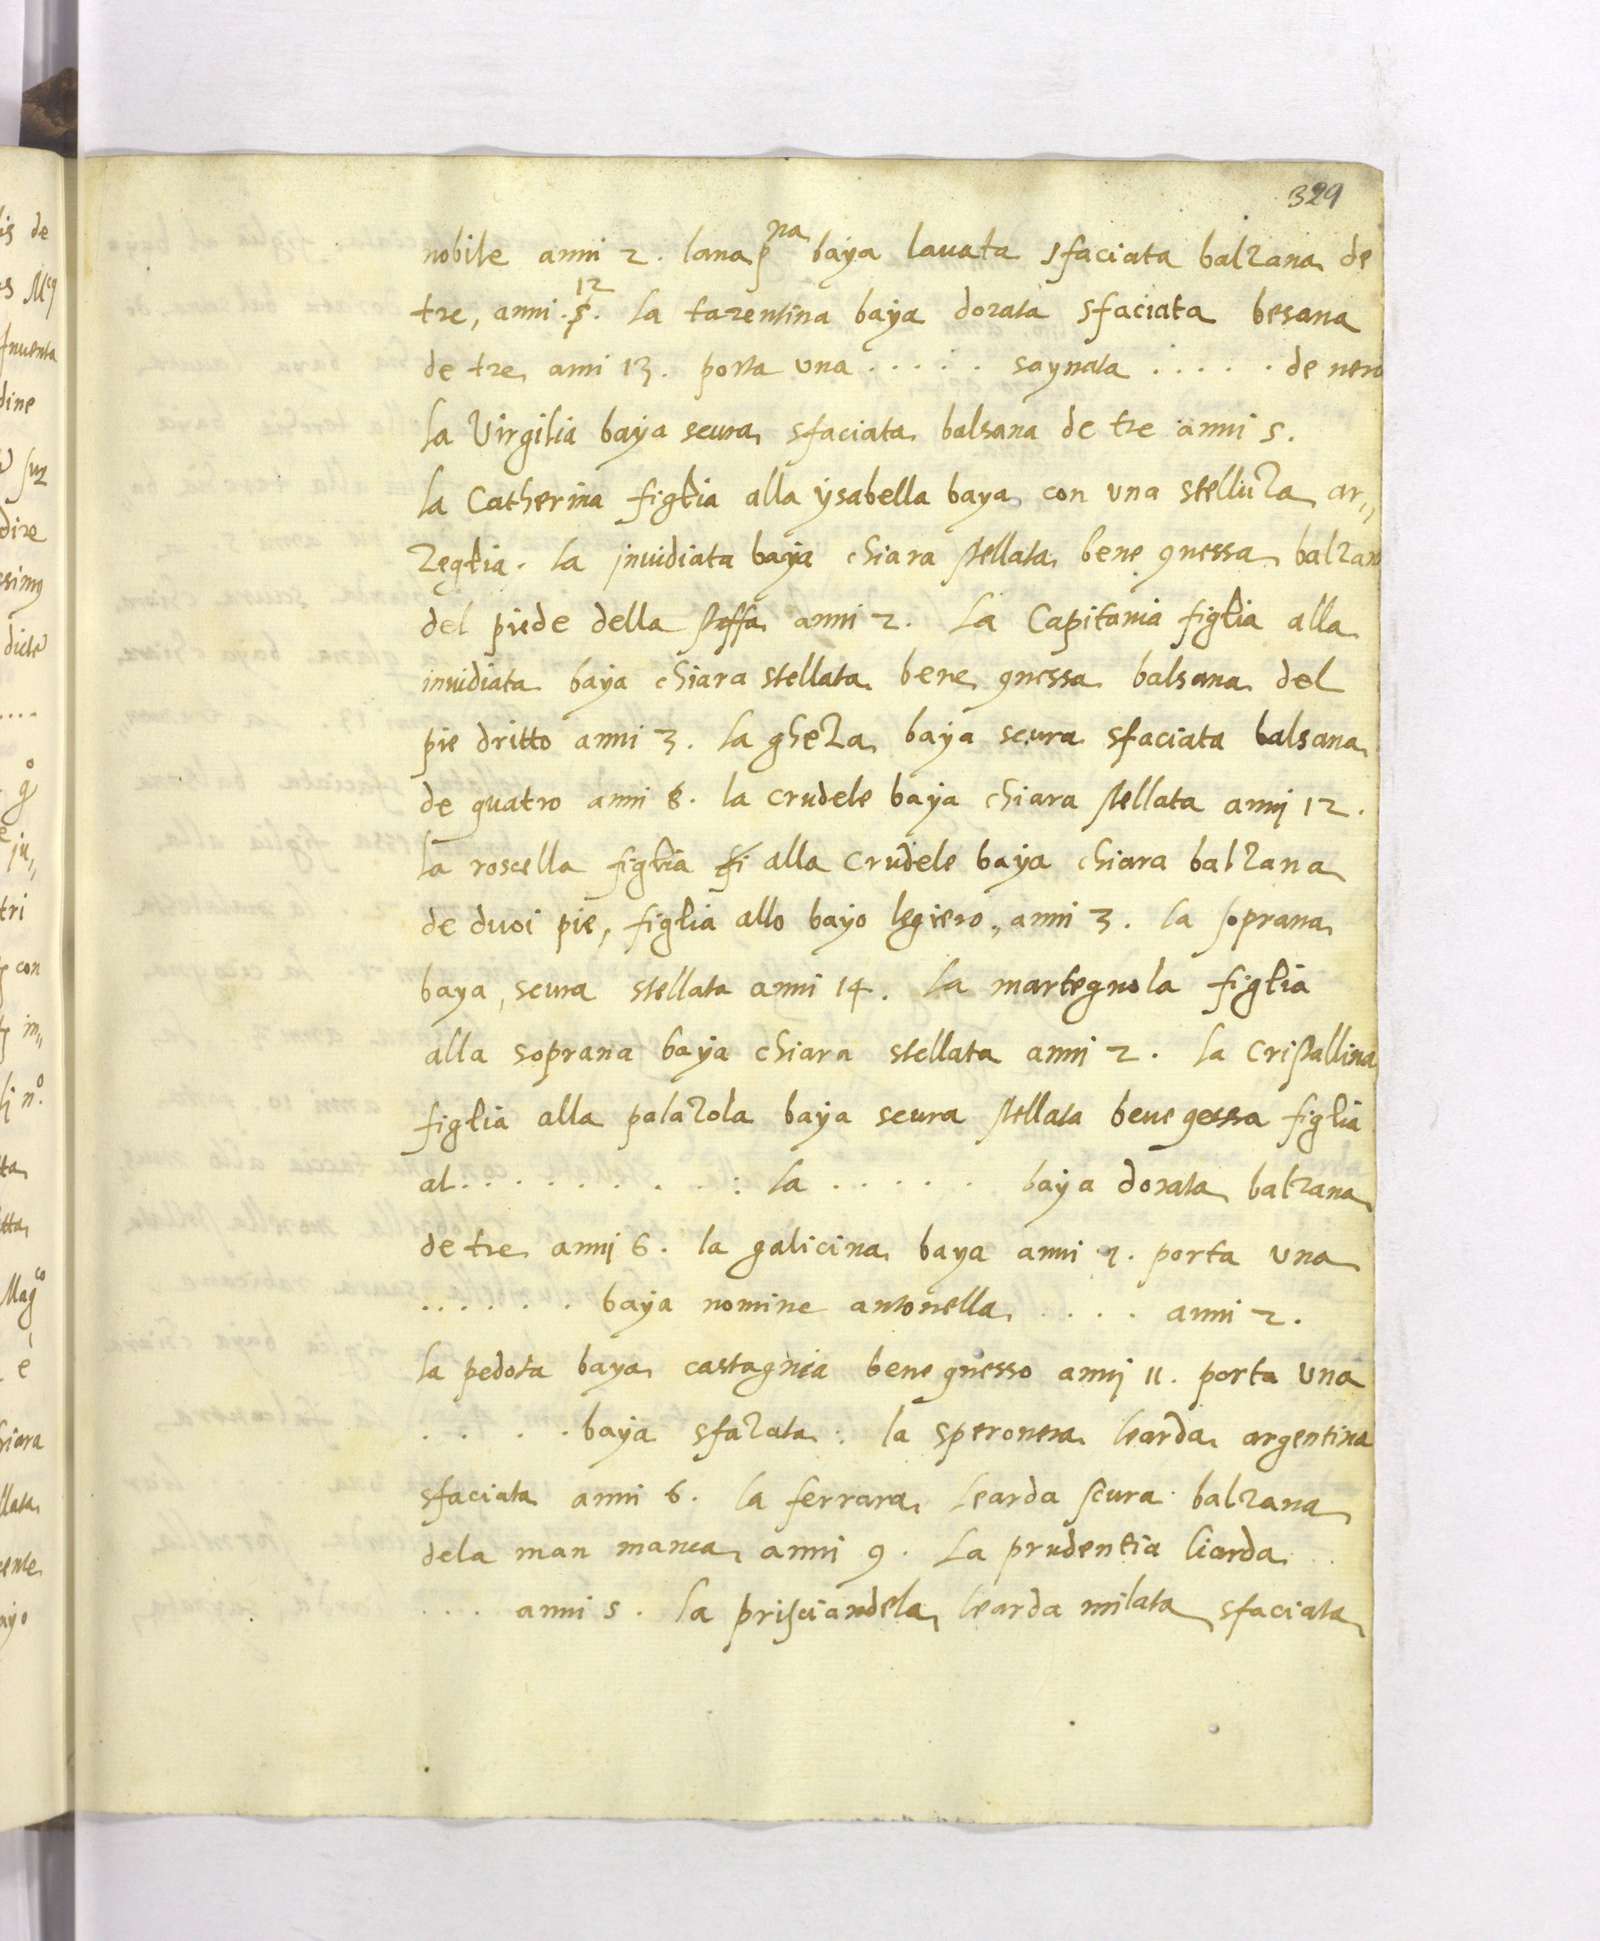 329
nobile anni 2. lana pna baya lauata sfaciata balzana de
tre, anni . 12 . la tarentina baya dorata sfaciata besana
de tre anni 13. porta una . . . . . saynata . . . . . de nero
la Virgilia baya scura sfaciata balsana de tre anni 5.
la Catherina figlia alla ysabella baya con una stelluza ar„
zeglia. la jnuidiata baya chiara stellata bene gnessa balzana
del piede della staffa anni 2. La Capitania figlia alla
inuidiata baya chiara stellata bene gnessa balsana del
pie dritto anni 3. la gheza baya scura sfaciata balsana
de quatro anni 8. la crudele baya chiara stellata annj 12.
la roscella figlia fi alla crudele baya chiara balzana
de duoi pie, figlia allo bayo legiero, anni 3. la soprana
baya, scura stellata anni 14. la martegnola figlia
alla soprana baya chiara stellata annj 2. la cristallina
figlia alla palazola baya scura stellata bene gessa figlia
al . . . . . . . . . : la . . . . . baya dorata balzana
de tre annj 6. la galicina baya anni 7. porta una
. . . . . . baya nomine antonella . . . . anni 2.
la pedota baya castagnia bene gnesso annj 11. porta una
. . . . baya sfazata : la speronera learda argentina
sfaciata anni 6. la ferrara learda scura balzana
dela man manca anni 9. La prudentia liarda . .
. . . . anni 5. la prisciandela learda milata sfaciata